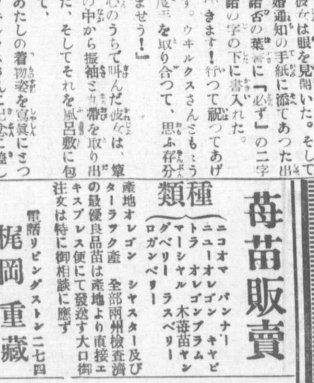 彼女は眼を見開いた。そして
婚通知の手紙に添てあつた出
諾否の葉書に『必ず』の二字
諾の字の下に書入れた。
きます！行つて祝つてあげ
す。ウキルクスさんとも：う
度手を取り合つて、思ふ存分
ませう！』
心のうちで叫んだ彼女は、簞
の中から振袖と帶を取り出
た、そしてそれを風呂敷に包
て、
あたしの着物姿を寫眞にとつ
苺苗販賣
種類
ニコオマ　バンナー
ニューオレゴン　キャピ
トラ　オレゴンプラム
マーシャル　木苺苗ヤン
グベリー　ラスベリー
ロガンベリー
產地オレゴン　シャスター及び
ターラック產　全部兩州檢查濟
の最優良品苗は產地より直接エ
キスプレス便にて發送す大口御
注文は特に御相談に應ず
電話リビングストン二七四
梶岡重藏